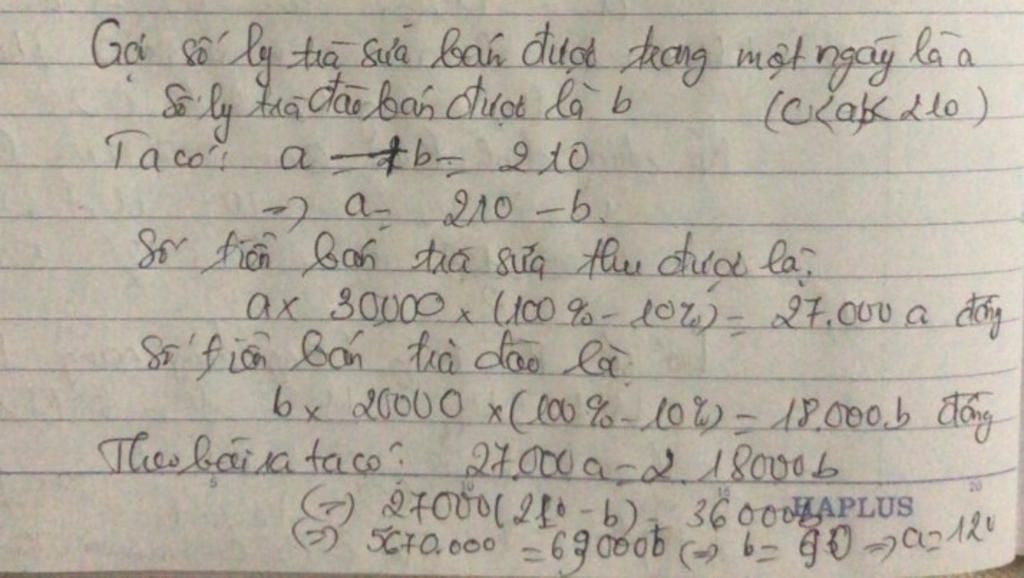 Gọi số ly trà sữa bán được trong một ngày là a
Số ly trà đào bán được là b (0<a,b<210)
Ta có: a + b = 210
=> a = 210 - b.
Số tiền bán trà sữa thu được là:
a x 30000 x (100% - 10%) = 27.000 a đồng
Số tiền bán trà đào là:
b x 20000 x (100% - 10%) = 18.000.b đồng
Theo bài ra ta có: 27.000a = 2.18000b
(=) 27000(210 - b) = 36000b
HAPLUS
(=) 5670.000 = 63000b (=) b = 90 => a = 120